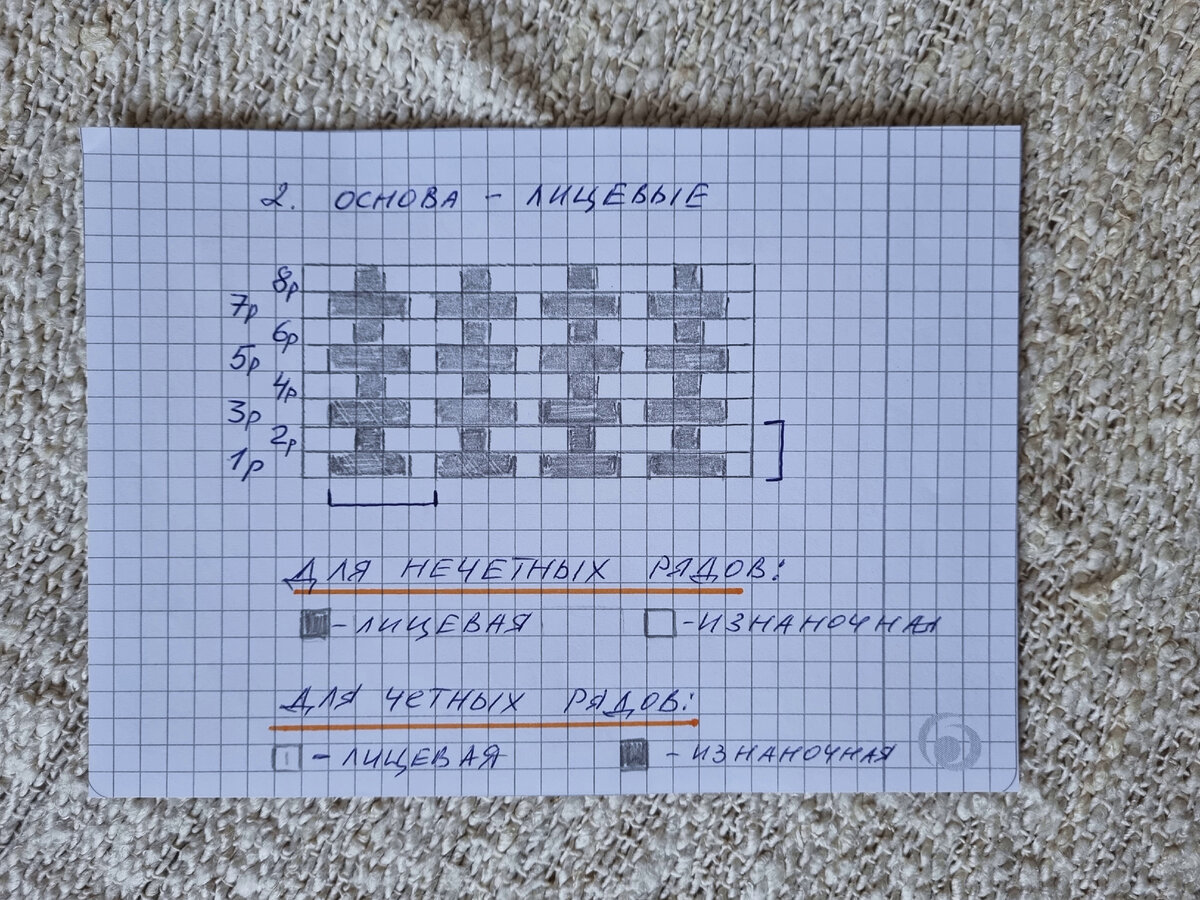 2. ОСНОВА - ЛИЦЕВЫЕ
8р
7р
6р
5р
4р
3р
2р
1р
ДЛЯ НЕЧЕТНЫХ РЯДОВ:
- ЛИЦЕВАЯ - ИЗНАНОЧНАЯ
ДЛЯ ЧЕТНЫХ РЯДОВ:
- ЛИЦЕВАЯ - ИЗНАНОЧНАЯ